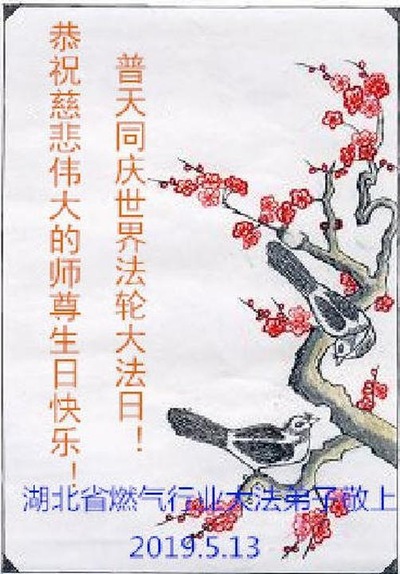 普天同庆世界法轮大法日！
恭祝慈悲伟大的师尊生日快乐！
湖北省燃气行业大法弟子敬上
2019.5.13